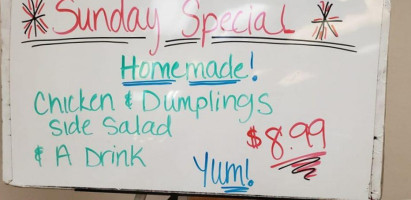 Sunday Special
Homemade!
Chicken & Dumplings
Side Salad
& A Drink
$8.99
Yum!